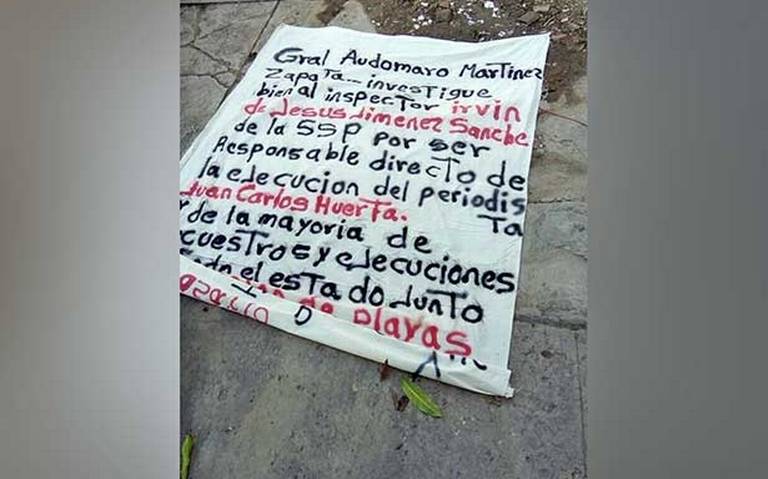 Gral Audomaro Martinez
Zapata... investigue
bien al inspector irvin
de Jesus Jimenez Sanche
de la SSP por ser
Responsable directo de
la ejecucion del periodis
Juan Carlos Huerta. Ta
y de la mayoria de
cuestros y ejecuciones
el estado Junto
de Playas